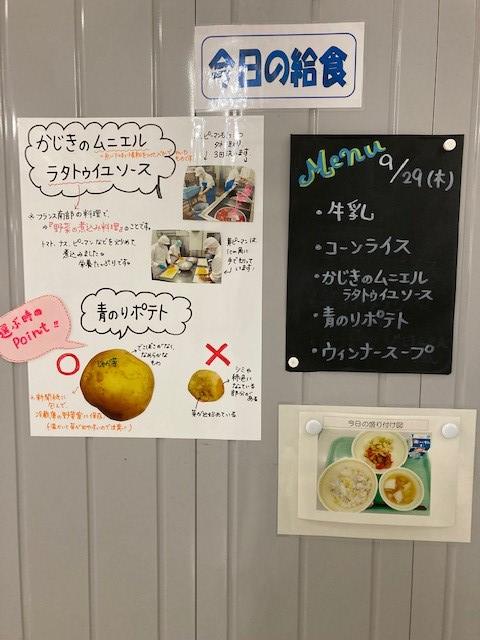 今日の給食
かじきのムニエル
ラタトゥイユソース
※フランス南部の料理で、
⇒『野菜の煮込み料理』のことです。
トマト、ナス、ピーマンなどを炒めて
煮込みました。
栄養たっぷりです。
ピーマンも1つ1つ
3回洗います
青のりポテト
選ぶ時の
Point!!
○
でこぼこがなく、
なめらかな
もの
×
シミや
緑色に
なっている
部分が
ある
芽が出始めている
※新聞紙に
包んで、
冷蔵庫の野菜室に保存
Menu
9/29(木)
・牛乳
・コーンライス
・かじきのムニエル
ラタトゥイユソース
・青のりポテト
・ウィンナースープ
今日の盛り付け図